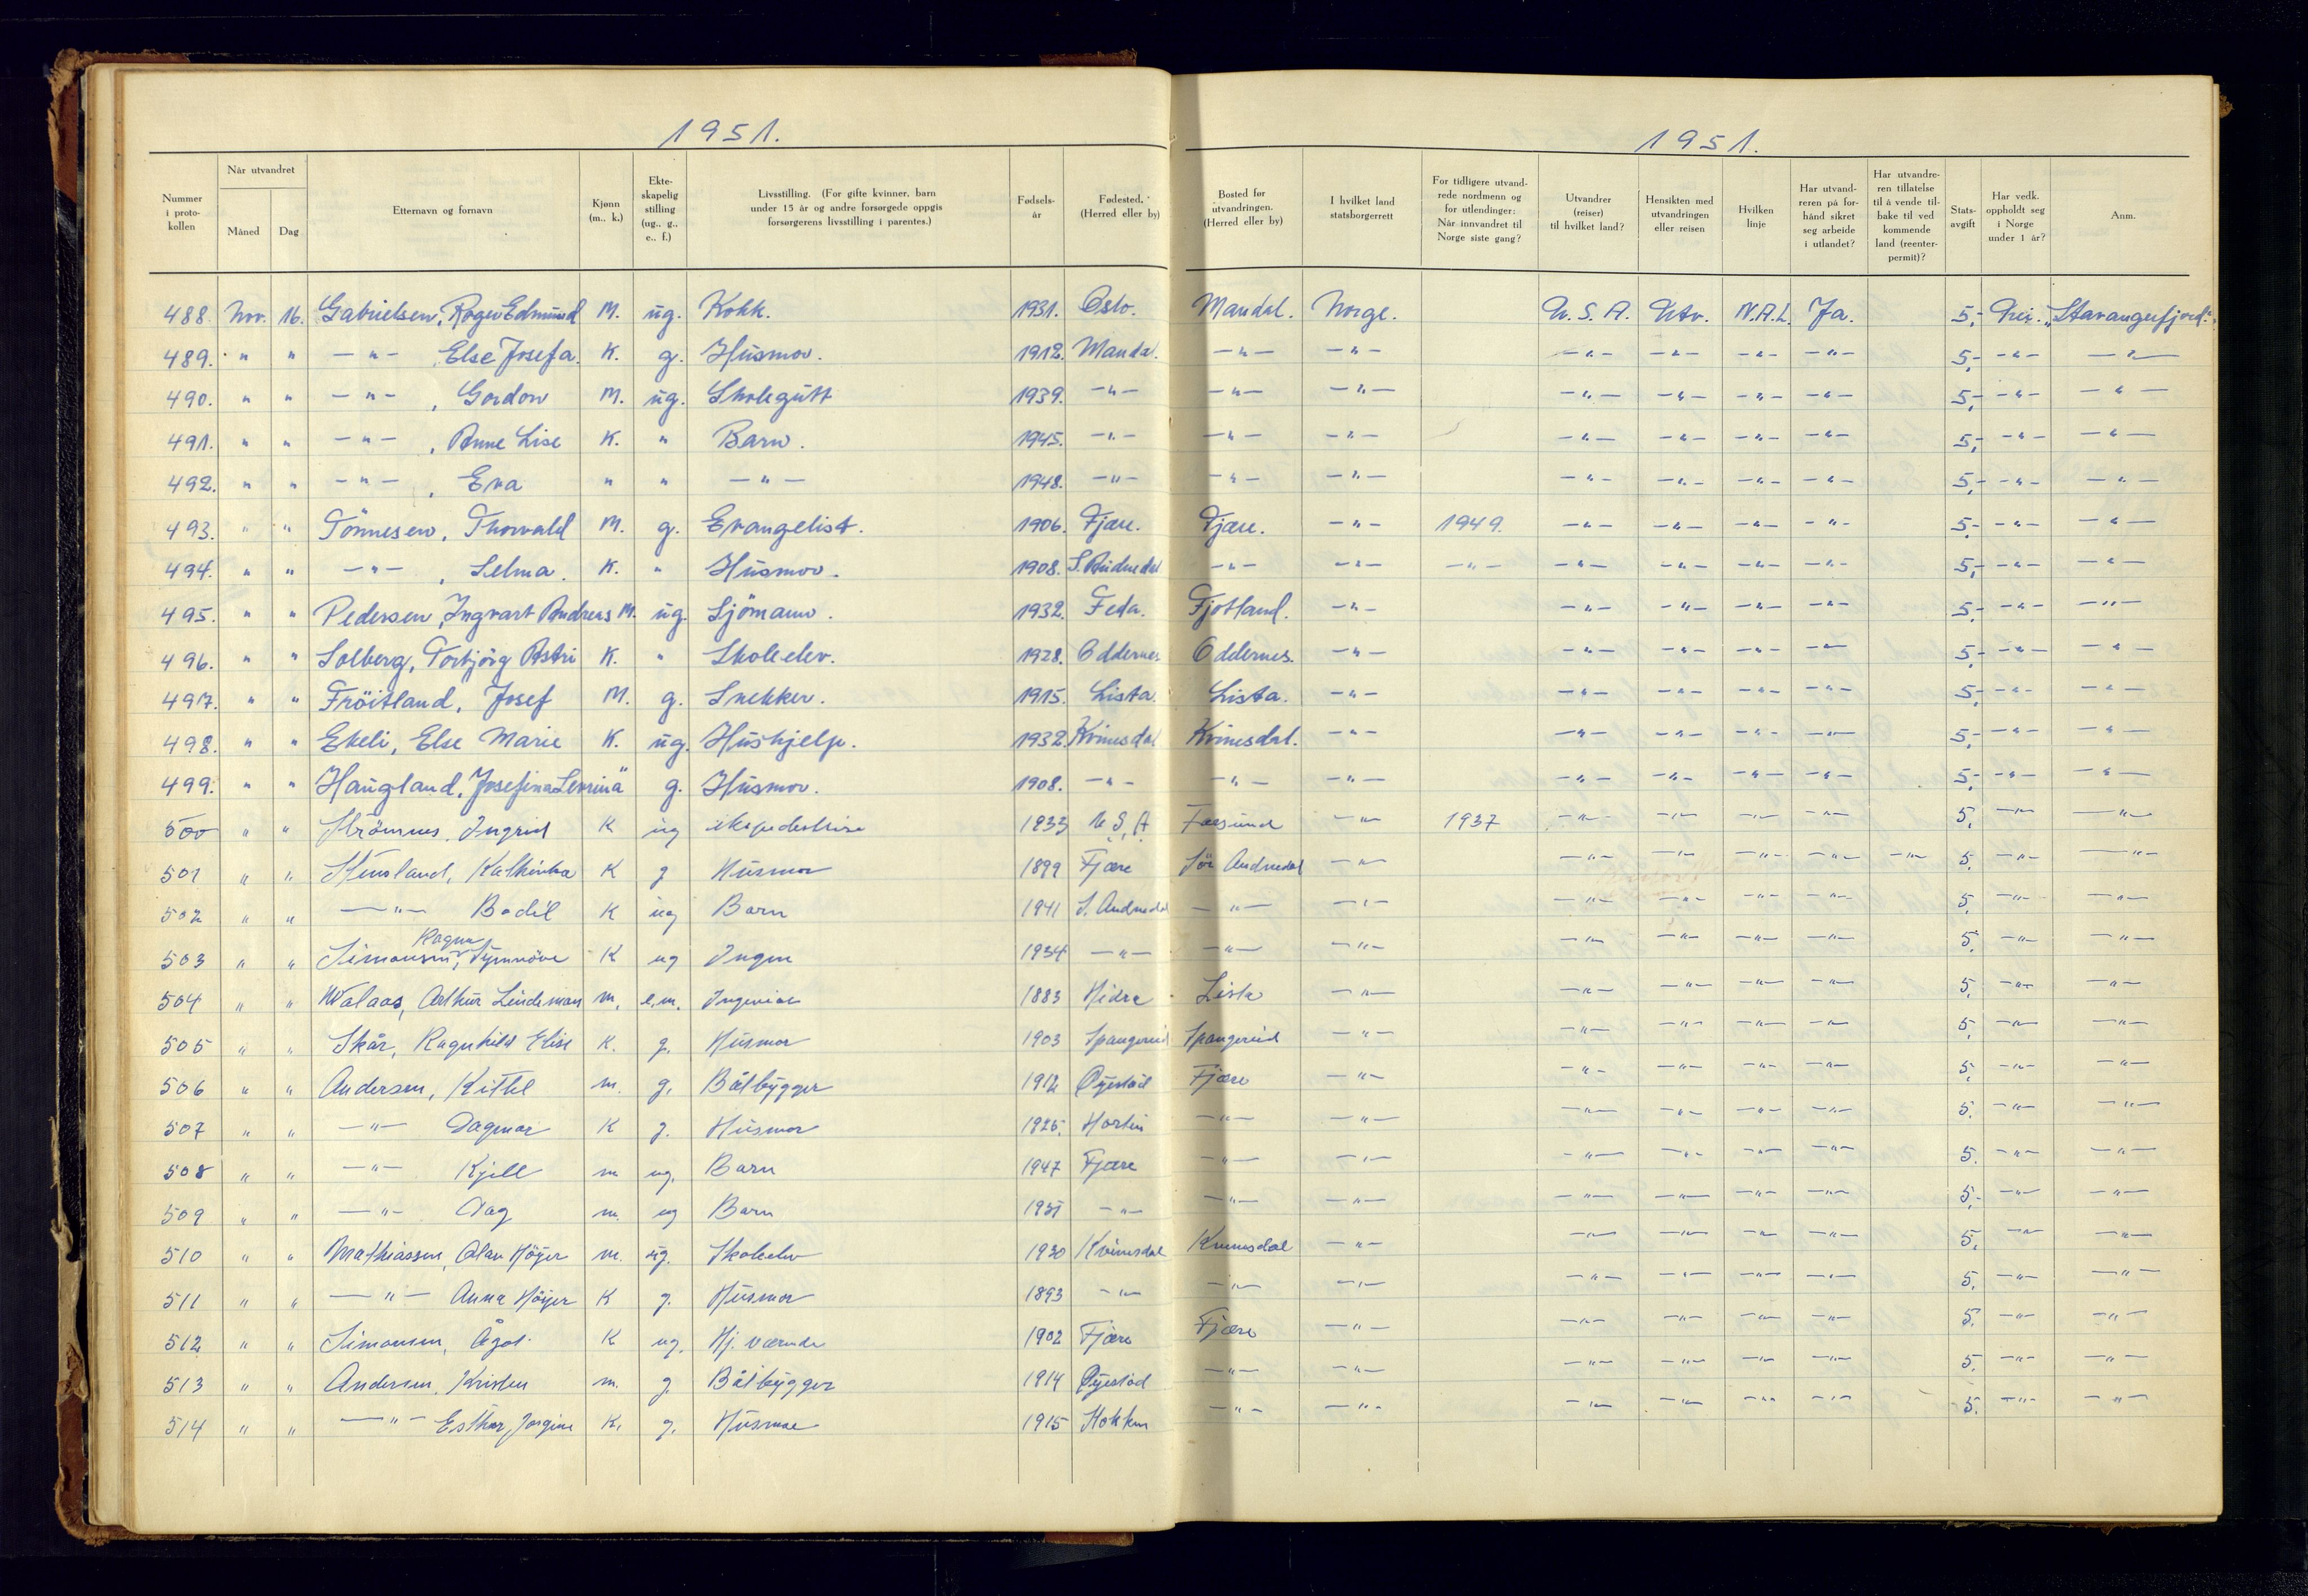 1951.
1951.
Nummer i protokollen | Når utvandret | Måned | Dag | Etternavn og fornavn | Kjønn (m., k.) | Ekteskapelig stilling (ug., g., e., f.) | Livsstilling. (For gifte kvinner, barn under 15 år og andre forsørgede oppgis forsørgerens livsstilling i parentes.) | Fødselsår | Fødested. (Herred eller by) | Bosted før utvandringen. (Herred eller by) | I hvilket land statsborgerrett | For tidligere utvandrede nordmenn og for utlendinger: Når innvandret til Norge siste gang? | Utvandrer (reiser) til hvilket land? | Hensikten med utvandringen eller reisen | Hvilken linje | Har utvandreren på forhånd sikret seg arbeide i utlandet? | Har utvandreren tillatelse til å vende tilbake til vedkommende land (reenterpermit)? | Statsavgift | Har vedk. oppholdt seg i Norge under 1 år? | Anm.
488. Nov. 16. Gabrielsen, Roger Edmund M. ug. Kokk. 1931. Oslo. Mandal. Norge. U.S.A. Utv. N.A.L. Ja. 5,- Nei. "Stavangerfjord".
489. " " —"— , Else Josefa. K. g. Husmor. 1912. Mandal. —"— —"— —"— —"— —"— —"— 5,- —"— —"—
490. " " —"— , Gordon M. ug. Skolegutt 1939. —"— —"— —"— —"— —"— —"— —"— 5,- —"— —"—
491. " " —"— , Anne Lise K. " Barn. 1945. —"— —"— —"— —"— —"— —"— —"— 5,- —"— —"—
492. " " —"— , Eva " " —"— 1948. —"— —"— —"— —"— —"— —"— —"— 5,- —"— —"—
493. " " Tönnesen, Thorvald M. g. Evangelist. 1906. Fjære. Fjære. —"— 1949. —"— —"— —"— —"— 5,- —"— —"—
494. " " —"— , Selma. K. " Husmor. 1908. S. Audnedal —"— —"— —"— —"— —"— —"— —"— 5,- —"— —"—
495. " " Pedersen, Ingvart Andreas M. ug. Sjömann. 1932. Feda. Fjotland. —"— —"— —"— —"— —"— 5,- —"— —"—
496. " " Solberg, Torbjörg Astri K. " Skoleelev. 1928. Oddernes Oddernes. —"— —"— —"— —"— —"— 5,- —"— —"—
497. " " Fröitland, Josef M. g. Snekker. 1915. Lista. Lista. —"— —"— —"— —"— —"— 5,- —"— —"—
498. " " Ekeli, Else Marie K. ug. Hushjelp. 1932. Kvinesdal Kvinesdal. —"— —"— —"— —"— —"— 5,- —"— —"—
499. " " Haugland, Josefina " g. Husmor. 1908. —"— —"— —"— —"— —"— —"— —"— 5,- —"— —"—
500 " " Strömnes, Ingrid K ug 1933 U.S.A Farsund —"— 1937 —"— —"— —"— —"— 5, —"— —"—
501 " " Kathinka K g Husmor 1899 Fjære Sör Audnedal —"— —"— —"— —"— —"— —"— 5, —"— —"—
502 " " —"— Bodil K ug Barn 1941 S. Audnedal —"— —"— —"— —"— —"— —"— 5, —"— —"—
Ragna
503 " " Simonsen, Synnöve K ug Ingen 1934 —"— —"— —"— —"— —"— —"— —"— 5, —"— —"—
504 " " Walaas, Arthur Lindeman m. e.m. Ingeniør 1883 Hidra Lista —"— —"— —"— —"— —"— 5, —"— —"—
505 " " Skår, Ragnhild Elise K. g. Husmor 1903 Spangereid Spangereid —"— —"— —"— —"— —"— 5, —"— —"—
506 " " Andersen, Kittel m. g. Båtbygger 1912 Øyestad Fjære —"— —"— —"— —"— —"— 5, —"— —"—
507 " " —"— Dagmar K g. Husmor 1925. Horten —"— —"— —"— —"— —"— —"— 5. —"— —"—
508 " " —"— Kjell m ug. Barn 1947 Fjære —"— —"— —"— —"— —"— —"— 5. —"— —"—
509 " " —"— Dag m. ug Barn 1951 —"— —"— —"— —"— —"— —"— —"— 5,- —"— —"—
510 " " Mathiassen, Olav Höyer m. ug. Skoleelev 1930 Kvinesdal Kvinesdal —"— —"— —"— —"— —"— 5, —"— —"—
511 " " —"— Anna Höyer K g. Husmor 1893 —"— —"— —"— —"— —"— —"— —"— 5, —"— —"—
512 " " Simonsen, Ågot K ug. Hj. værende 1902 Fjære Fjære —"— —"— —"— —"— —"— 5, —"— —"—
513 " " Andersen, Kristen m. g. Båtbygger 1914 Øyestad —"— —"— —"— —"— —"— —"— 5. —"— —"—
514 " " —"— Esther, Jorgine K. g. Husmor 1915 —"— —"— —"— —"— —"— —"— 5, —"— —"—